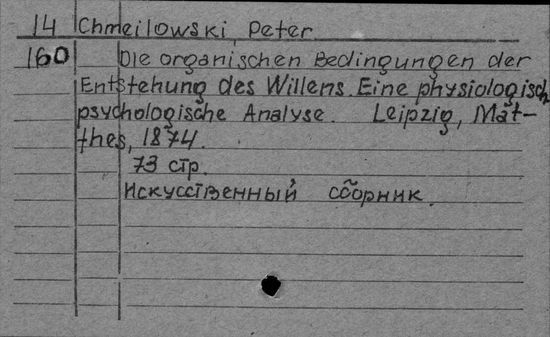 14 Chmeilowski, Peter
160 Die organischen Bedingungen der
Entstehung des Willens. Eine physiologisch
psychologische Analyse. Leipzig, Mat-
thes, 1874.
73 стр.
Искусственный сборник.